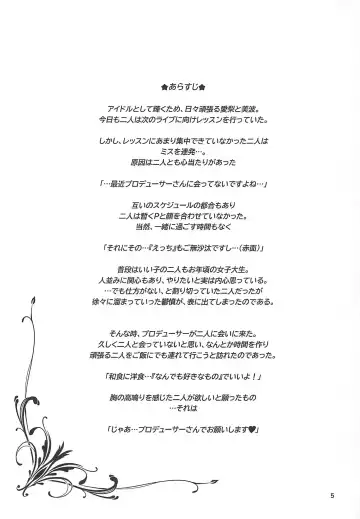 ★あらすじ★
アイドルとして輝くため、日々頑張る愛梨と美波。
今日も二人は次のライブに向けレッスンを行っていた。
しかし、レッスンにあまり集中できていなかった二人は
ミスを連発…。
原因は二人とも心当たりがあった
「…最近プロデューサーさんに会ってないですよね…」
互いのスケジュールの都合もあり
二人は暫くPと顔を合わせていなかった。
当然、一緒に過ごす時間もなく
「それにその…『えっち』もご無沙汰ですし…(赤面)」
普段はいい子の二人もお年頃の女子大生。
人並みに関心もあり、やりたいと実は内心思っている。
…でも仕方がない、と割り切っていた二人だったが
徐々に溜まっていった鬱憤が、表に出てしまったのである。
そんな時、プロデューサーが二人に会いに来た。
久しく二人と会っていないと思い、なんとか時間を作り
頑張る二人をご飯にでも連れて行こうと訪れたのであった。
「和食に洋食…『なんでも好きなもの』でいいよ!」
胸の高鳴りを感じた二人が欲しいと願ったもの
…それは
「じゃあ…プロデューサーさんでお願いします♥」
5